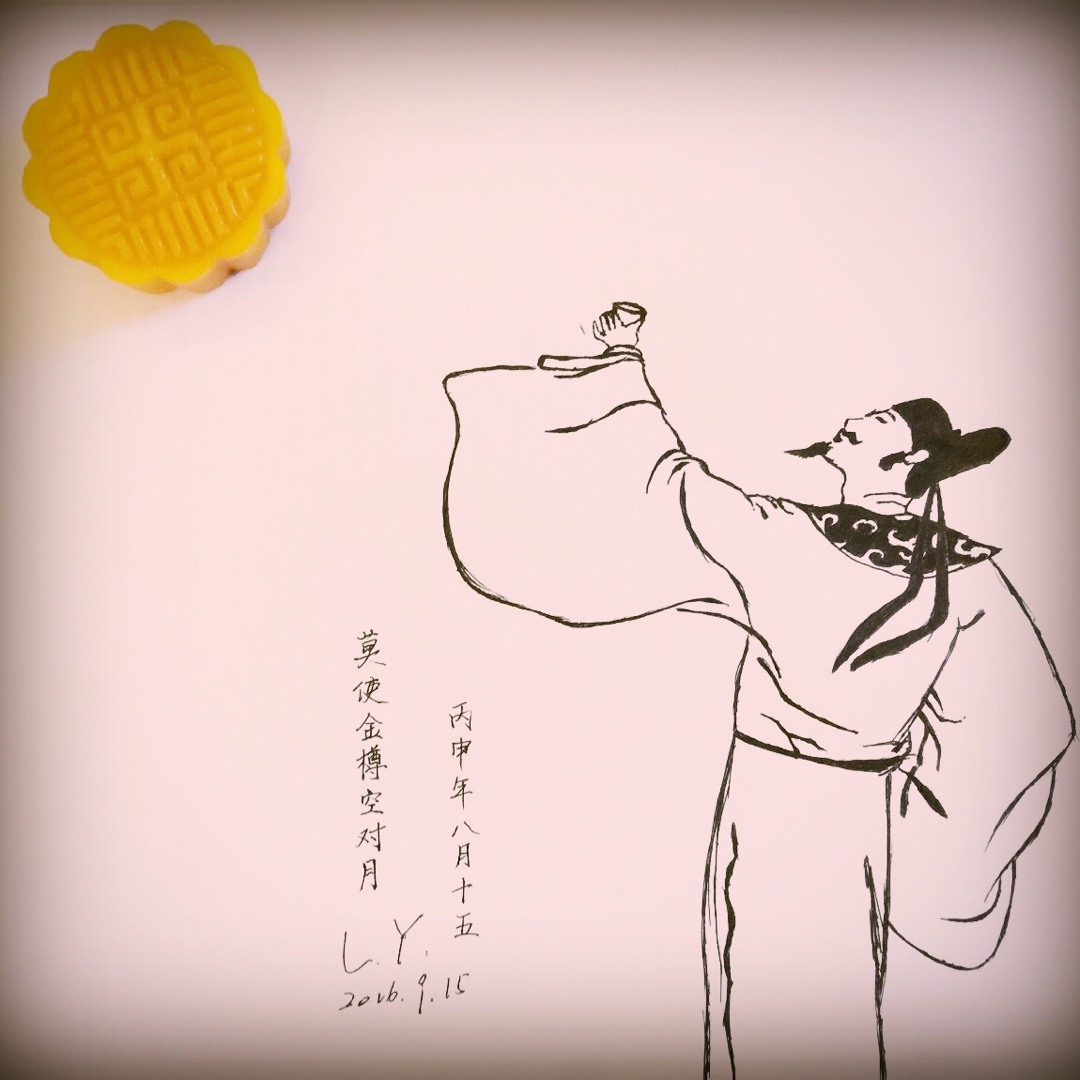 丙申年八月十五
莫使金樽空对月
L.Y.
2016.9.15